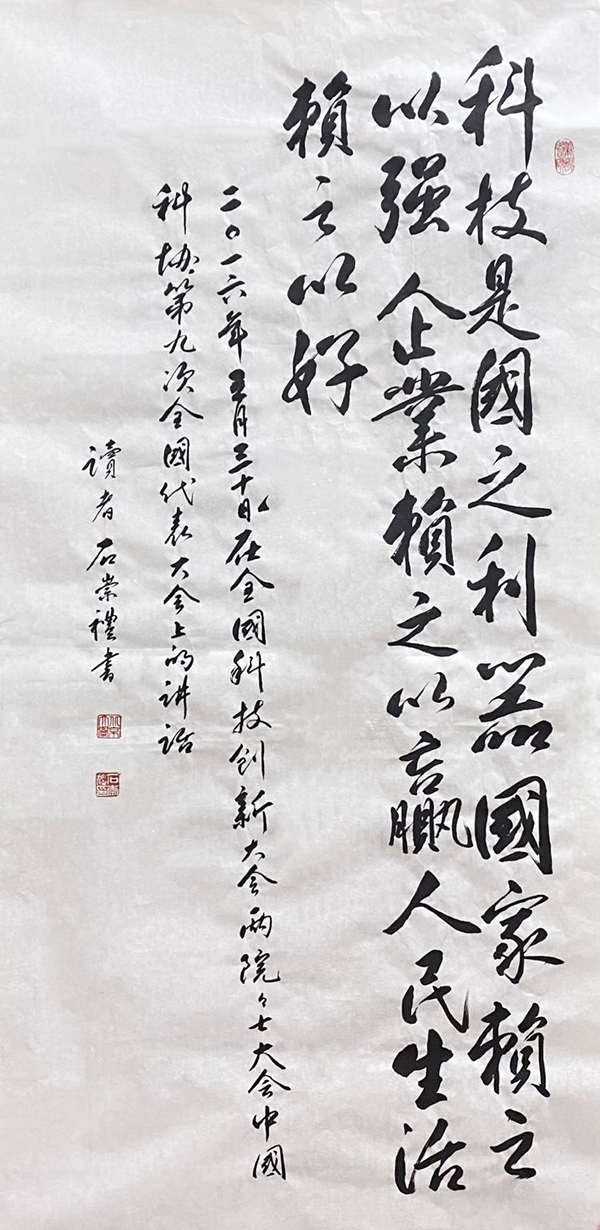 科技是國之利器國家賴之
以强企業賴之以贏人民生活
賴之以好
二〇一六年五月三十日在全國科技創新大会两院々士大会中國
科协第九次全國代表大会上的讲话
讀者石崇禮書